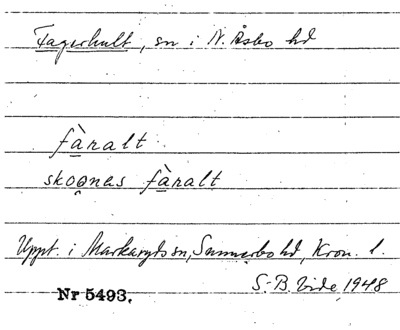 Fagerhult, sn i N. Åsbo hd
fàralt
skoǫnas fàralt
Uppt. i Markaryds sn, Sunnerbo hd, Kron. l.
S.-B. Vide, 1948
Nr 5493.